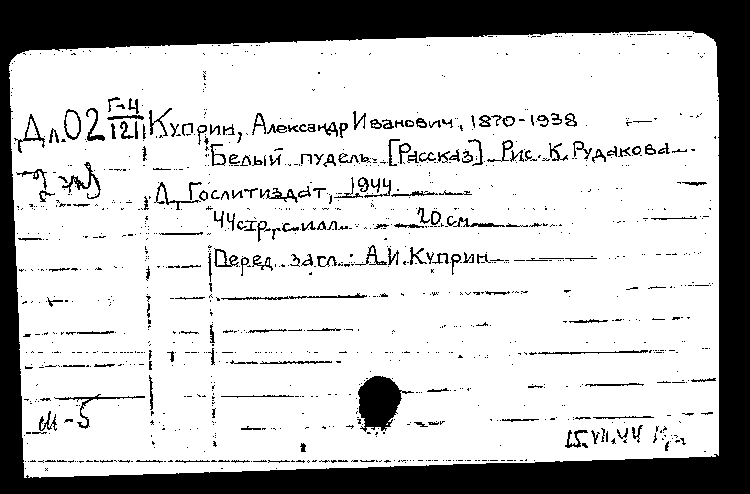 Дл.02 Г-4/121 Куприн, Александр Иванович, 1870-1938
Белый пудель. [Рассказ]. Рис. К. Рудакова.
2 экз
Л., Гослитиздат, 1944.
44 стр., с илл. 20 см.
Перед загл.: А.И. Куприн
М-5
15.VII.44